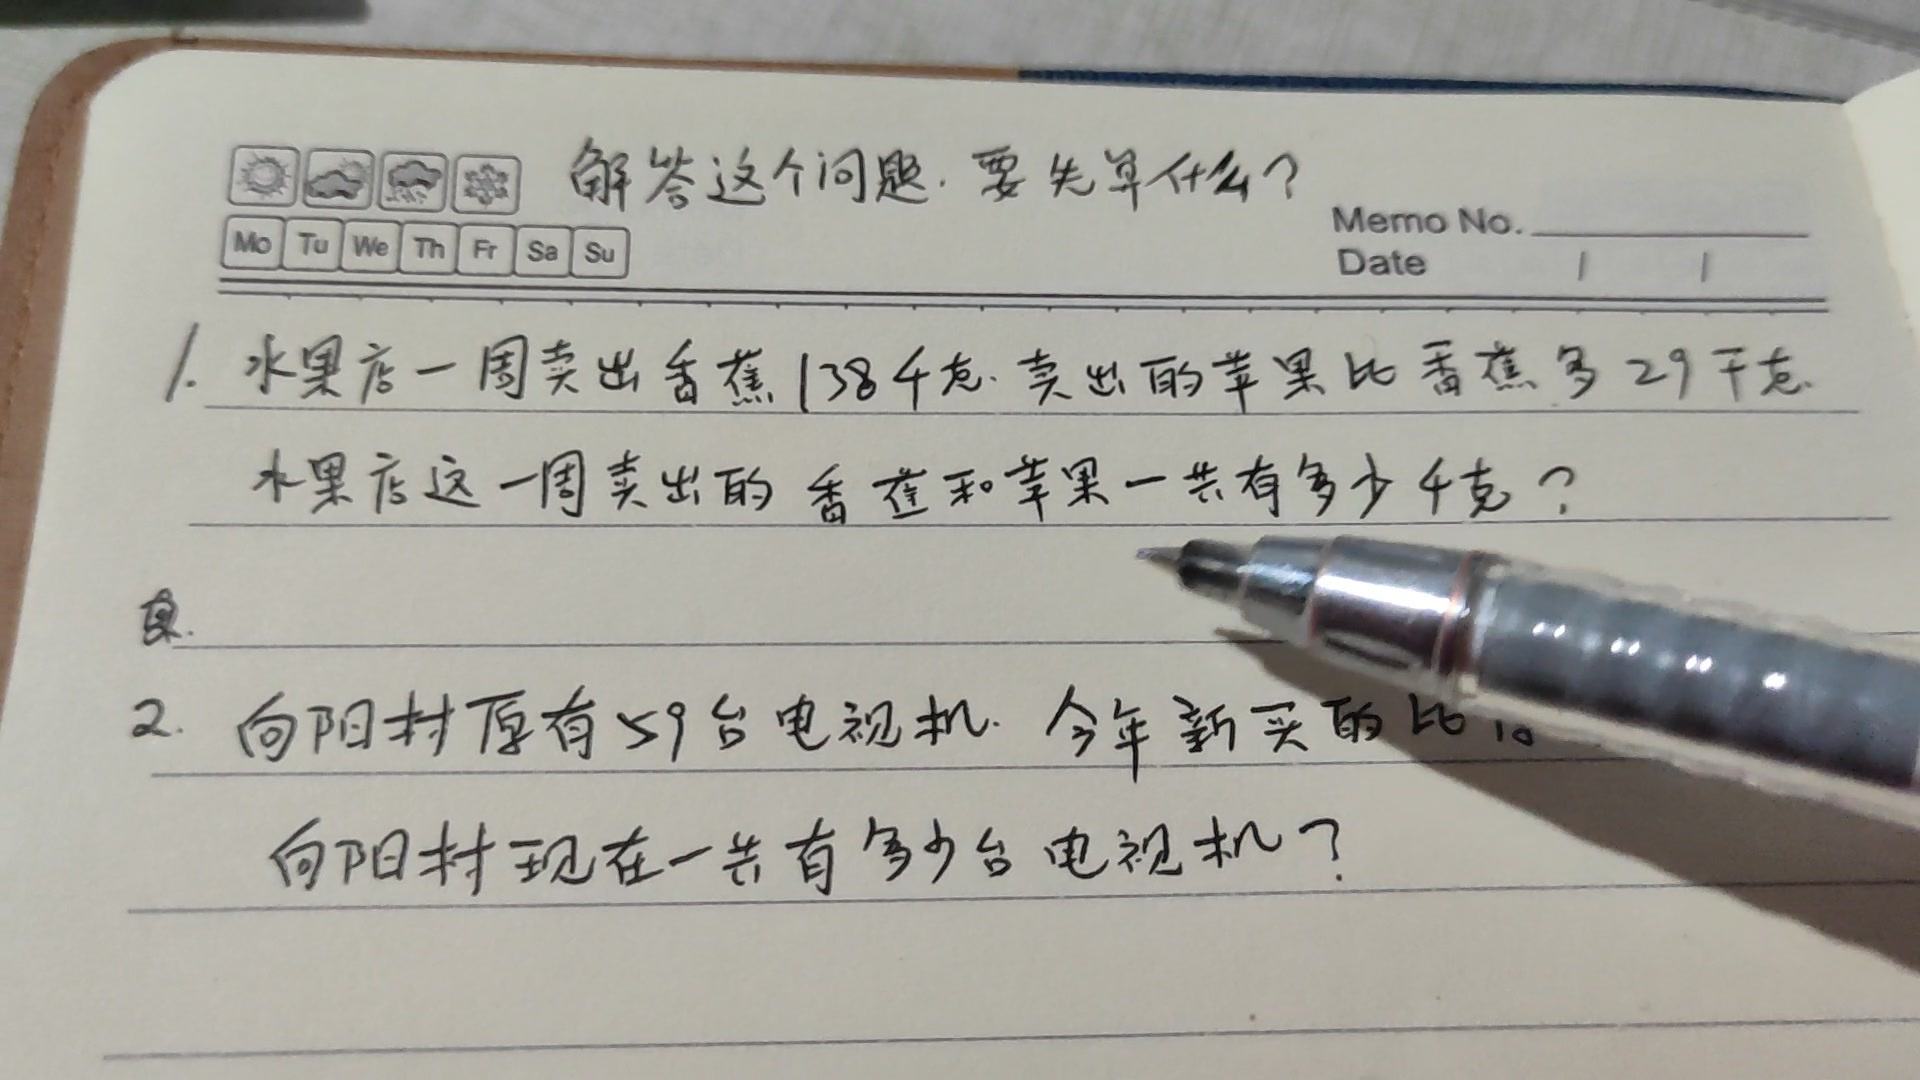 解答这个问题.要先算什么?
Memo No.
Mo Tu We Th Fr Sa Su
Date / /
1. 水果店一周卖出香蕉138千克.卖出的苹果比香蕉多29千克.
水果店这一周卖出的香蕉和苹果一共有多少千克?
2. 向阳村原有59台电视机.今年新买的比
向阳村现在一共有多少台电视机?